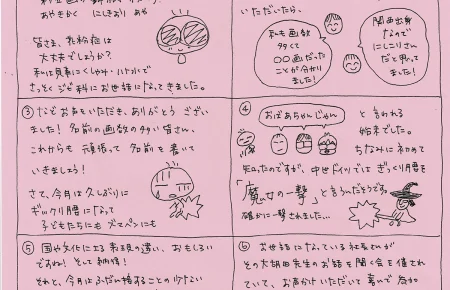 あやきかく にしきおり ある
皆さま、花粉症は
大丈夫でしょうか?
私は見事にくしゃみ・ハナ水で
さっそく 耳鼻科にお世話になってきました。
いただいたら、
私も画数
多くて
〇〇画だった
ことが分かり
ました!
関西出身
なので
にしこりさん
だと思って
ました!
③
などお声をいただき、ありがとう ござい
ました! 名前の画数の多い皆さん、
これからも 頑張って 名前を書いて
いきましょう!
さて、今月は久しぶりに
ギックリ腰になって
子どもたちにも
④
おばあちゃんじゃん
と 言われる
始末でした。
ちなみに 初めて
知ったのですが、中世ドイツでは ぎっくり腰を
「魔女の一撃」と言うんだそうです。
確かに一撃されました…
⑤
国や文化による表現の違い、おもしろい
ですね! そして納得!
それと、今月はふだん接することの少ない
⑥
お世話になっている社長さんが
その大胡田先生のお話を聞く会を催され
ていて、お声かけいただいて 喜んで